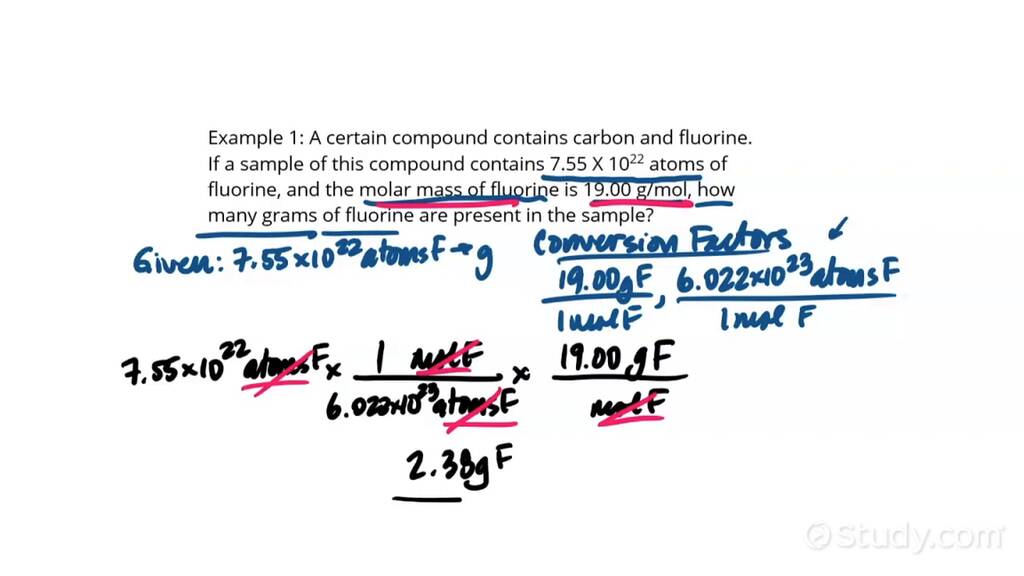 Example 1: A certain compound contains carbon and fluorine.
If a sample of this compound contains 7.55 X 10²² atoms of
fluorine, and the molar mass of fluorine is 19.00 g/mol, how
many grams of fluorine are present in the sample?
Given: 7.55×10²² atoms F → g
Conversion Factors
19.00 g F / 1 mol F , 6.022×10²³ atoms F / 1 mol F
7.55×10²² atoms F × 1 mol F / 6.022×10²³ atoms F × 19.00 g F / mol F
2.38 g F
Study.com